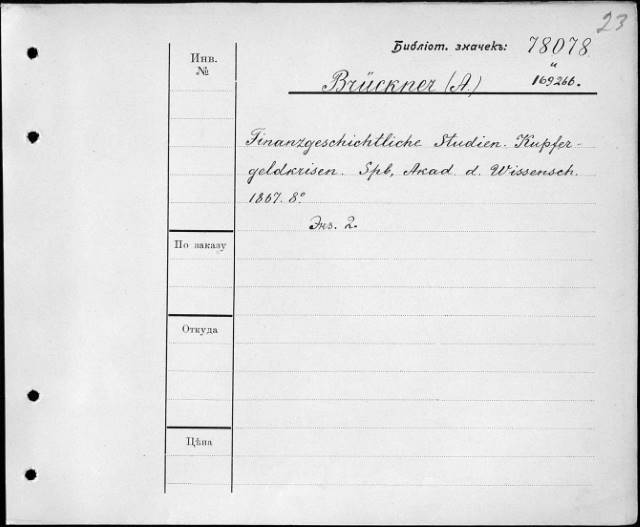 23
Библіот. значекъ: 78078
"
Инв. №
Brückner (A.) 169266.
Finanzgeschichtliche Studien. Kupfer-
geldkrisen. Spb, Akad. d. Wissensch.
1867. 8°
Экз. 2.
По заказу
Откуда
Цѣна